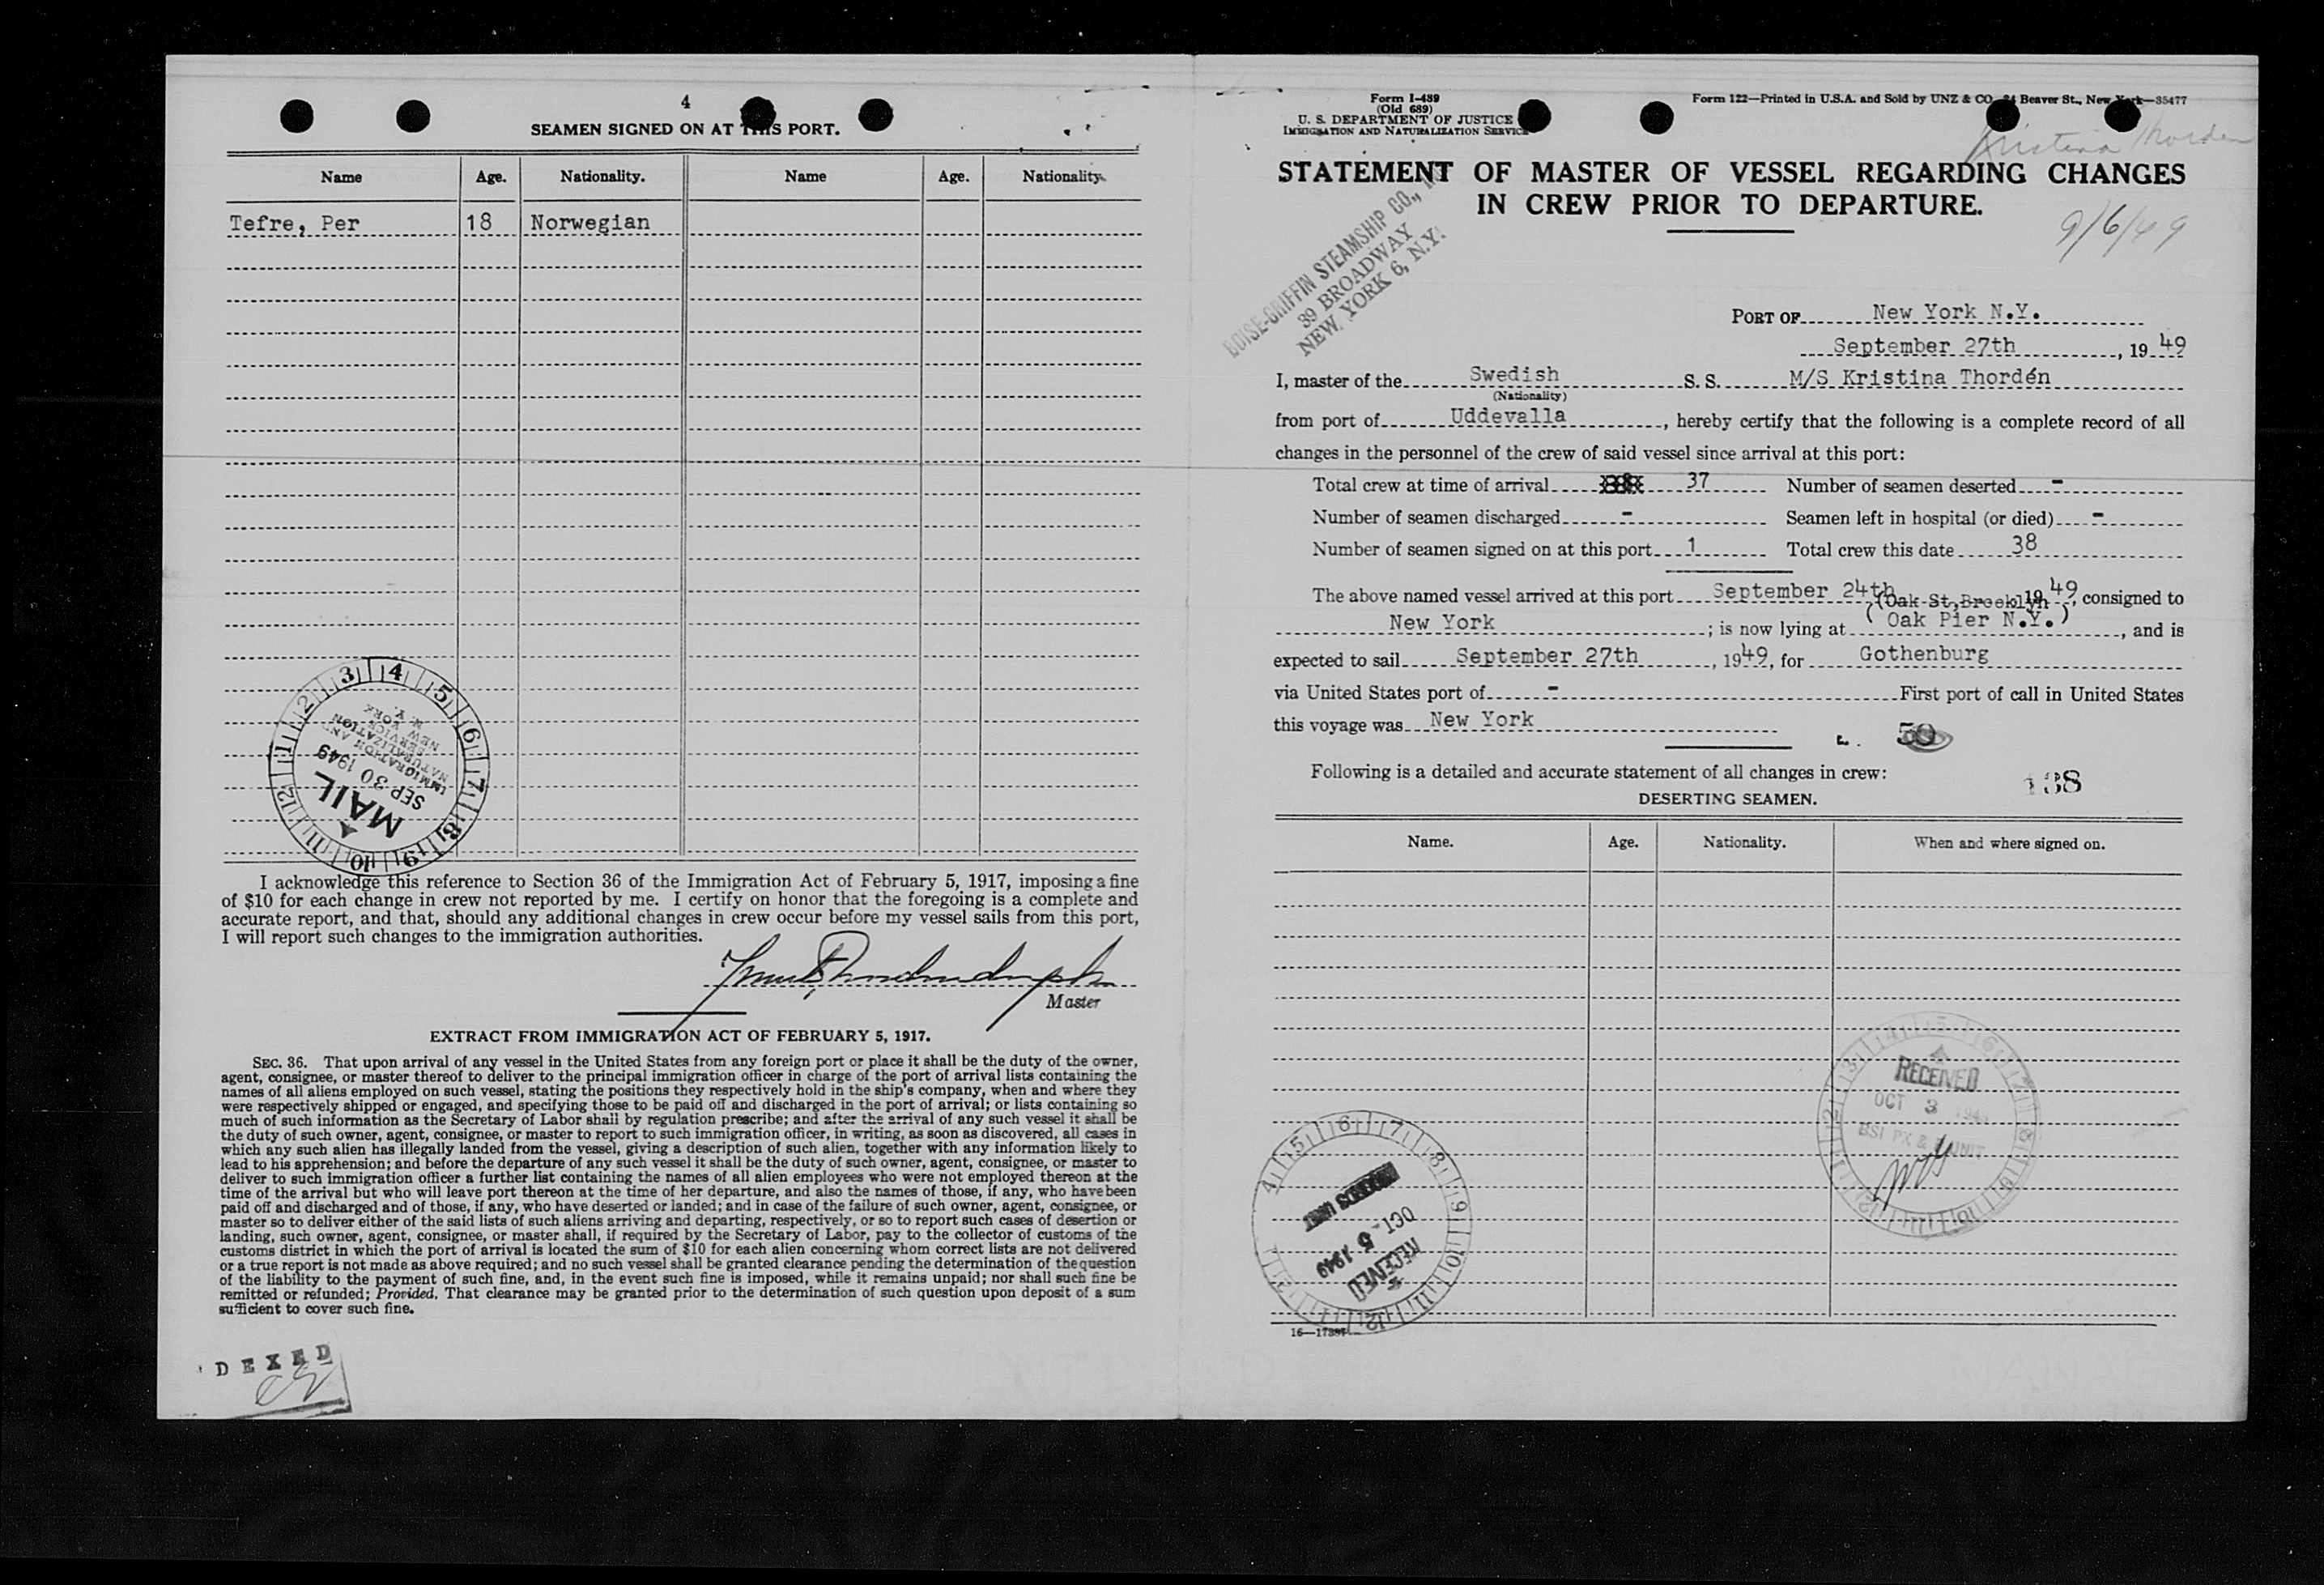 4
SEAMEN SIGNED ON AT THIS PORT.
Name Age. Nationality. Name Age. Nationality.
Tefre, Per 18 Norwegian
IMMIGRATION AND
NATURALIZATION
SERVICE
NEW YORK
N. Y.
SEP 30 1949
MAIL
1 2 3 4 5 6 7 8 9 10 11 12
I acknowledge this reference to Section 36 of the Immigration Act of February 5, 1917, imposing a fine
of $10 for each change in crew not reported by me. I certify on honor that the foregoing is a complete and
accurate report, and that, should any additional changes in crew occur before my vessel sails from this port,
I will report such changes to the immigration authorities.
Master
EXTRACT FROM IMMIGRATION ACT OF FEBRUARY 5, 1917.
SEC. 36. That upon arrival of any vessel in the United States from any foreign port or place it shall be the duty of the owner,
agent, consignee, or master thereof to deliver to the principal immigration officer in charge of the port of arrival lists containing the
names of all aliens employed on such vessel, stating the positions they respectively hold in the ship's company, when and where they
were respectively shipped or engaged, and specifying those to be paid off and discharged in the port of arrival; or lists containing so
much of such information as the Secretary of Labor shall by regulation prescribe; and after the arrival of any such vessel it shall be
the duty of such owner, agent, consignee, or master to report to such immigration officer, in writing, as soon as discovered, all cases in
which any such alien has illegally landed from the vessel, giving a description of such alien, together with any information likely to
lead to his apprehension; and before the departure of any such vessel it shall be the duty of such owner, agent, consignee, or master to
deliver to such immigration officer a further list containing the names of all alien employees who were not employed thereon at the
time of the arrival but who will leave port thereon at the time of her departure, and also the names of those, if any, who have been
paid off and discharged and of those, if any, who have deserted or landed; and in case of the failure of such owner, agent, consignee, or
master so to deliver either of the said lists of such aliens arriving and departing, respectively, or so to report such cases of desertion or
landing, such owner, agent, consignee, or master shall, if required by the Secretary of Labor, pay to the collector of customs of the
customs district in which the port of arrival is located the sum of $10 for each alien concerning whom correct lists are not delivered
or a true report is not made as above required; and no such vessel shall be granted clearance pending the determination of the question
of the liability to the payment of such fine, and, in the event such fine is imposed, while it remains unpaid; nor shall such fine be
remitted or refunded; Provided, That clearance may be granted prior to the determination of such question upon deposit of a sum
sufficient to cover such fine.
DEXED
Form I-489
(Old 689)
U. S. DEPARTMENT OF JUSTICE
IMMIGRATION AND NATURALIZATION SERVICE
Form 122—Printed in U.S.A. and Sold by UNZ & CO., 24 Beaver St., New York—35477
Kristina Thorden
STATEMENT OF MASTER OF VESSEL REGARDING CHANGES
IN CREW PRIOR TO DEPARTURE.
9/6/49
BOISE-GRIFFIN STEAMSHIP CO., INC.
39 BROADWAY
NEW YORK 6, N.Y.
PORT OF New York N.Y.
September 27th, 1949
I, master of the Swedish S. S. M/S Kristina Thordén
(Nationality)
from port of Uddevalla, hereby certify that the following is a complete record of all
changes in the personnel of the crew of said vessel since arrival at this port:
Total crew at time of arrival 37 Number of seamen deserted -
Number of seamen discharged - Seamen left in hospital (or died) -
Number of seamen signed on at this port 1 Total crew this date 38
The above named vessel arrived at this port September 24th, 1949, consigned to
(Oak St, Brooklyn
New York; is now lying at ( Oak Pier N.Y.), and is
expected to sail September 27th, 1949, for Gothenburg
via United States port of - First port of call in United States
this voyage was New York
50
Following is a detailed and accurate statement of all changes in crew:
138
DESERTING SEAMEN.
Name. Age. Nationality. When and where signed on.
RECEIVED
OCT 3 1949
BSI PX & UNIT
OCT - 5 1949
RECEIVED
16—17397